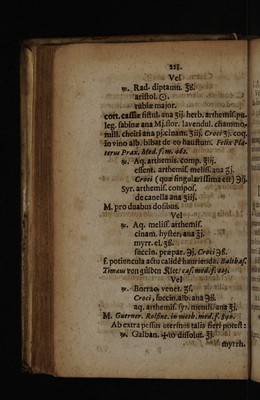 228.
Vel
℞. Rad. diptamn. ʒß.
aristol. ☉.
rubiæ major.
cort. cassiæ fistul. ana ʒij. herb. arthemis. pu-
leg. sabinæ ana Mj. flor. lavendul. chamom.
mill. cheiri ana pj. cinam. ʒiij. Croci ʒj. coq.
in vino alb. bibat de eo haustum. Felix Pla-
terus Prax. Med. f. m.
℞. Aq. arthemis. comp. ℥iij.
essent. arthemis. meliss. ana ʒj.
Croci (quæ singularissima est) ℈ij.
Syr. arthemis. compos.
de canella ana ʒiij.
M. pro duabus dosibus.
Vel
℞. Aq. meliss. arthemis.
cinam. hyster. ana ℥j.
myrr. el. ʒß.
succin. præpar. ℈j. Croci ℈ß.
f. potiuncula actu calidè haurienda. Balthas.
Timæus von güldin Klee/ cas. med. f.
Vel
℞. Borrac. venet. ʒß.
Croci, succin. alb. ana ℈ß.
aq. arthemis. syr. ana ℥j.
M. Guerner. Rolfinc. in meth. med. f. 540.
Ab extra pessus uterinus talis fieri potest:
℞. Galban. dissolut. ℥j.
myrrh.